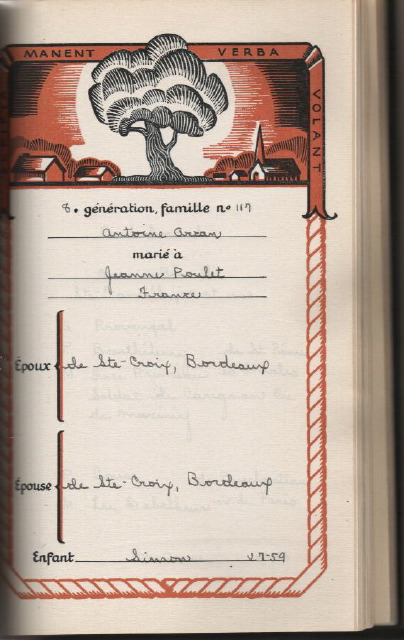 MANENT VERBA
VOLANT
8e génération, famille no 117
Antoine
marié à
Jeanne Poulet
France
Époux de Ste-Croix, Bordeaux
Épouse de Ste-Croix, Bordeaux
Enfant Simon V-7-59